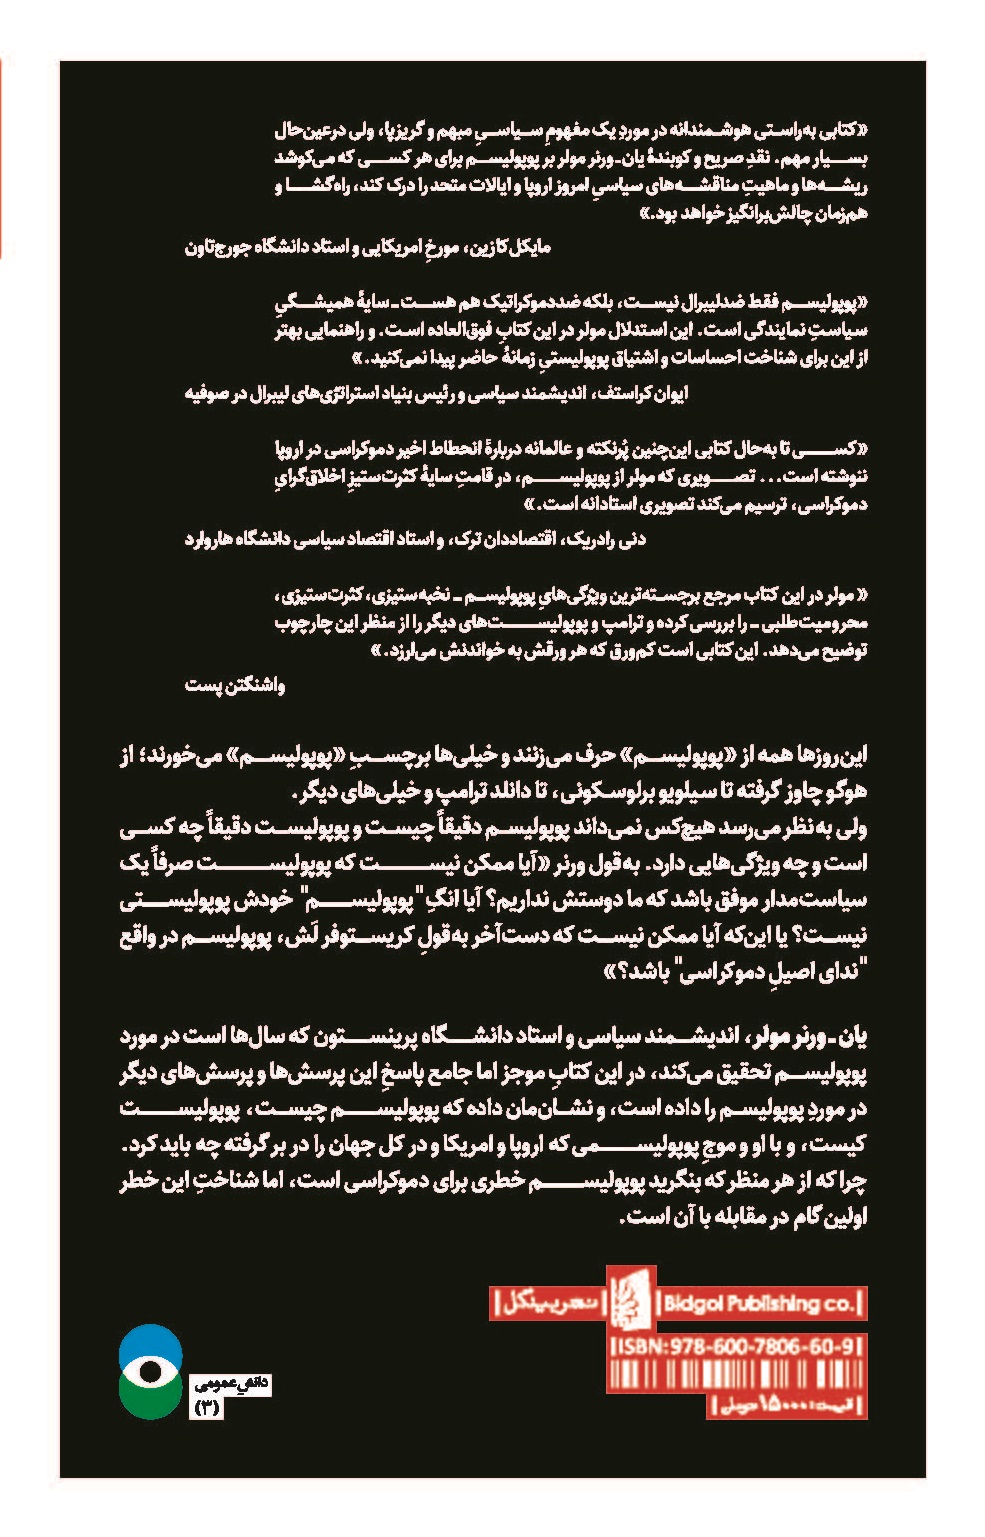 «کتابی به‌راستی هوشمندانه در موردِ یک مفهومِ سیاسیِ مبهم و گریزپا، ولی درعین‌حال
بسیار مهم. نقدِ صریح و کوبندهٔ یان-ورنر مولر بر پوپولیسم برای هر کسی که می‌کوشد
ریشه‌ها و ماهیتِ مناقشه‌های سیاسیِ امروز اروپا و ایالات متحد را درک کند، راه‌گشا و
هم‌زمان چالش‌برانگیز خواهد بود.»
مایکل کازین، مورخِ امریکایی و استاد دانشگاه جورج‌تاون
«پوپولیسم فقط ضدلیبرال نیست، بلکه ضددموکراتیک هم هست ـ سایهٔ همیشگیِ
سیاستِ نمایندگی است. این استدلال مولر در این کتابِ فوق‌العاده است. و راهنمایی بهتر
از این برای شناخت احساسات و اشتیاق پوپولیستیِ زمانهٔ حاضر پیدا نمی‌کنید.»
ایوان کراستف، اندیشمند سیاسی و رئیس بنیاد استراتژی‌های لیبرال در صوفیه
«کسی تا به‌حال کتابی این‌چنین پُرنکته و عالمانه دربارهٔ انحطاط اخیر دموکراسی در اروپا
ننوشته است... تصویری که مولر از پوپولیسم، در قامتِ سایهٔ کثرت‌ستیزِ اخلاق‌گرایِ
دموکراسی، ترسیم می‌کند تصویری استادانه است.»
دنی رادریک، اقتصاددان ترک، و استاد اقتصاد سیاسی دانشگاه هاروارد
«مولر در این کتاب مرجع برجسته‌ترین ویژگی‌هایِ پوپولیسم ـ نخبه‌ستیزی، کثرت‌ستیزی،
محرومیت‌طلبی ـ را بررسی کرده و ترامپ و پوپولیست‌های دیگر را از منظر این چارچوب
توضیح می‌دهد. این کتابی است کم‌ورق که هر ورقش به خواندنش می‌ارزد.»
واشنگتن پست
این‌روزها همه از «پوپولیسم» حرف می‌زنند و خیلی‌ها برچسبِ «پوپولیسم» می‌خورند؛ از
هوگو چاوز گرفته تا سیلویو برلوسکونی، تا دانلد ترامپ و خیلی‌های دیگر.
ولی به نظر می‌رسد هیچ‌کس نمی‌داند پوپولیسم دقیقاً چیست و پوپولیست دقیقاً چه کسی
است و چه ویژگی‌هایی دارد. به‌قول ورنر «آیا ممکن نیست که پوپولیست صرفاً یک
سیاست‌مدار موفق باشد که ما دوستش نداریم؟ آیا انگِ "پوپولیسم" خودش پوپولیستی
نیست؟ یا این‌که آیا ممکن نیست که دست‌آخر به‌قولِ کریستوفر لَش، پوپولیسم در واقع
"ندای اصیلِ دموکراسی" باشد؟»
یان-ورنر مولر، اندیشمند سیاسی و استاد دانشگاه پرینستون که سال‌ها است در مورد
پوپولیسم تحقیق می‌کند، در این کتابِ موجز اما جامع پاسخِ این پرسش‌ها و پرسش‌های دیگر
در موردِ پوپولیسم را داده است، و نشان‌مان داده که پوپولیسم چیست، پوپولیست
کیست، و با او و موجِ پوپولیسمی که اروپا و امریکا و در کل جهان را در بر گرفته چه باید کرد.
چرا که از هر منظر که بنگرید پوپولیسم خطری برای دموکراسی است، اما شناختِ این خطر
اولین گام در مقابله با آن است.
|نشر بیدگل| |Bidgol Publishing co.|
|ISBN: 978-600-7806-60-9|
|قیمت: ۱۵۰۰۰ تومان|
دانش‌ِعمومی
(۳)